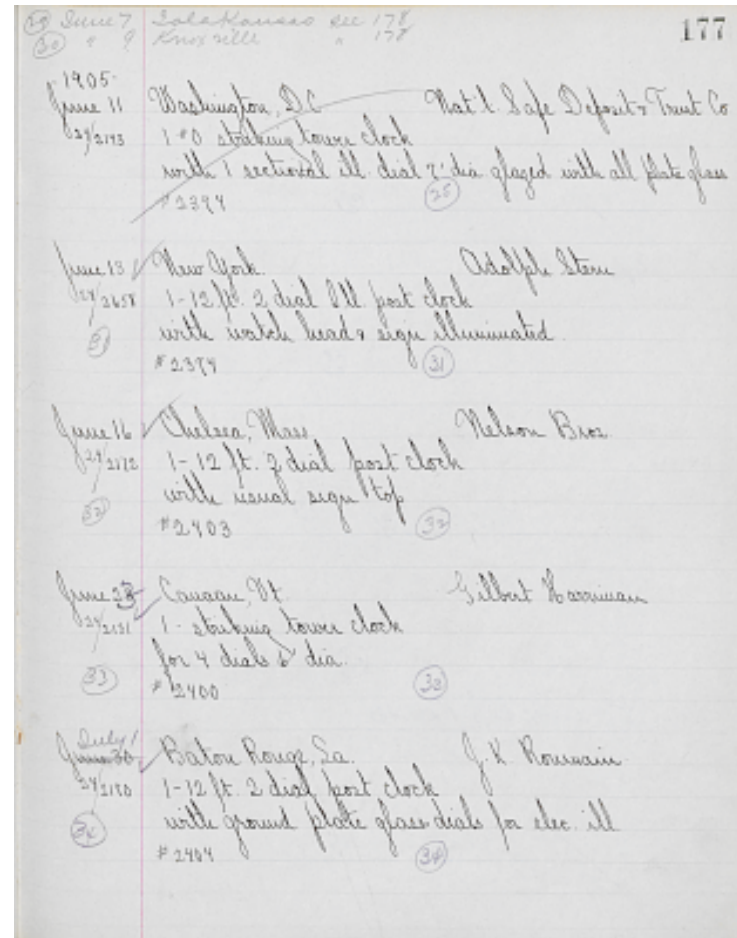 29 June 7 Iola Kansas see 178
30 " 9 Knoxville " 178
177
1905-
June 11 Washington, D.C Nat'l. Safe Deposit & Trust Co
24/2193 1 #0 striking tower clock
with 1 sectional ill. dial 7' dia glazed with all plate glass
#2394 25
June 13 New York. Adolph Stern
24/2658 1-12 ft. 2 dial Ill. post clock
with watch head & sign illuminated.
31 31
June 16 Chelsea, Mass. Nelson Bros.
24/2172 1-12 ft. 2 dial post clock
with usual sign top
32 #2403 32
June 23 Canaan, Vt. Gilbert Harriman
24/2131 1- striking tower clock
for 4 dials dia.
33 #2400 33
July 1
June 30 Baton Rouge, La. J.K. Roumain
1-12 ft. 2 dial post clock
with ground plate glass dials for elec. ill
34 #2404 34